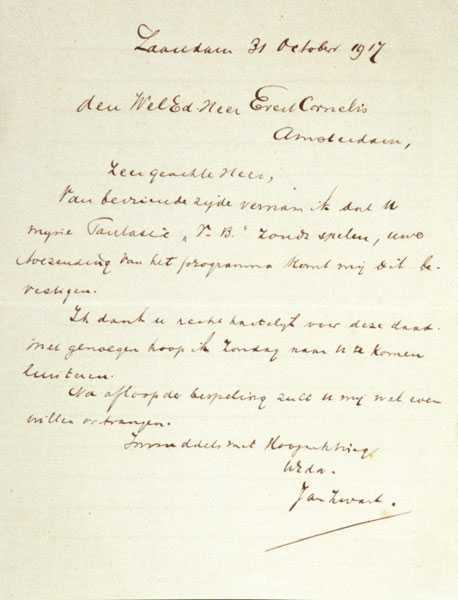 Zaandam 31 October 1917
den WelEd. Heer Evert Cornelis
Amsterdam,
Zeer geachte Heer,
Van bevriende zijde vernam ik dat U
mijne Fantasie „ B." zoudt spelen, uwe
toezending van het programma komt mij dit be-
vestigen.
Ik dank u recht hartelijk voor deze daad.
Met genoegen hoop ik Zondag naar U te komen
luisteren.
Na afloop der bespeling zult U mij wel even
willen ontvangen.
Inmiddels met Hoogachting
UEdn.
Jan Zwart.